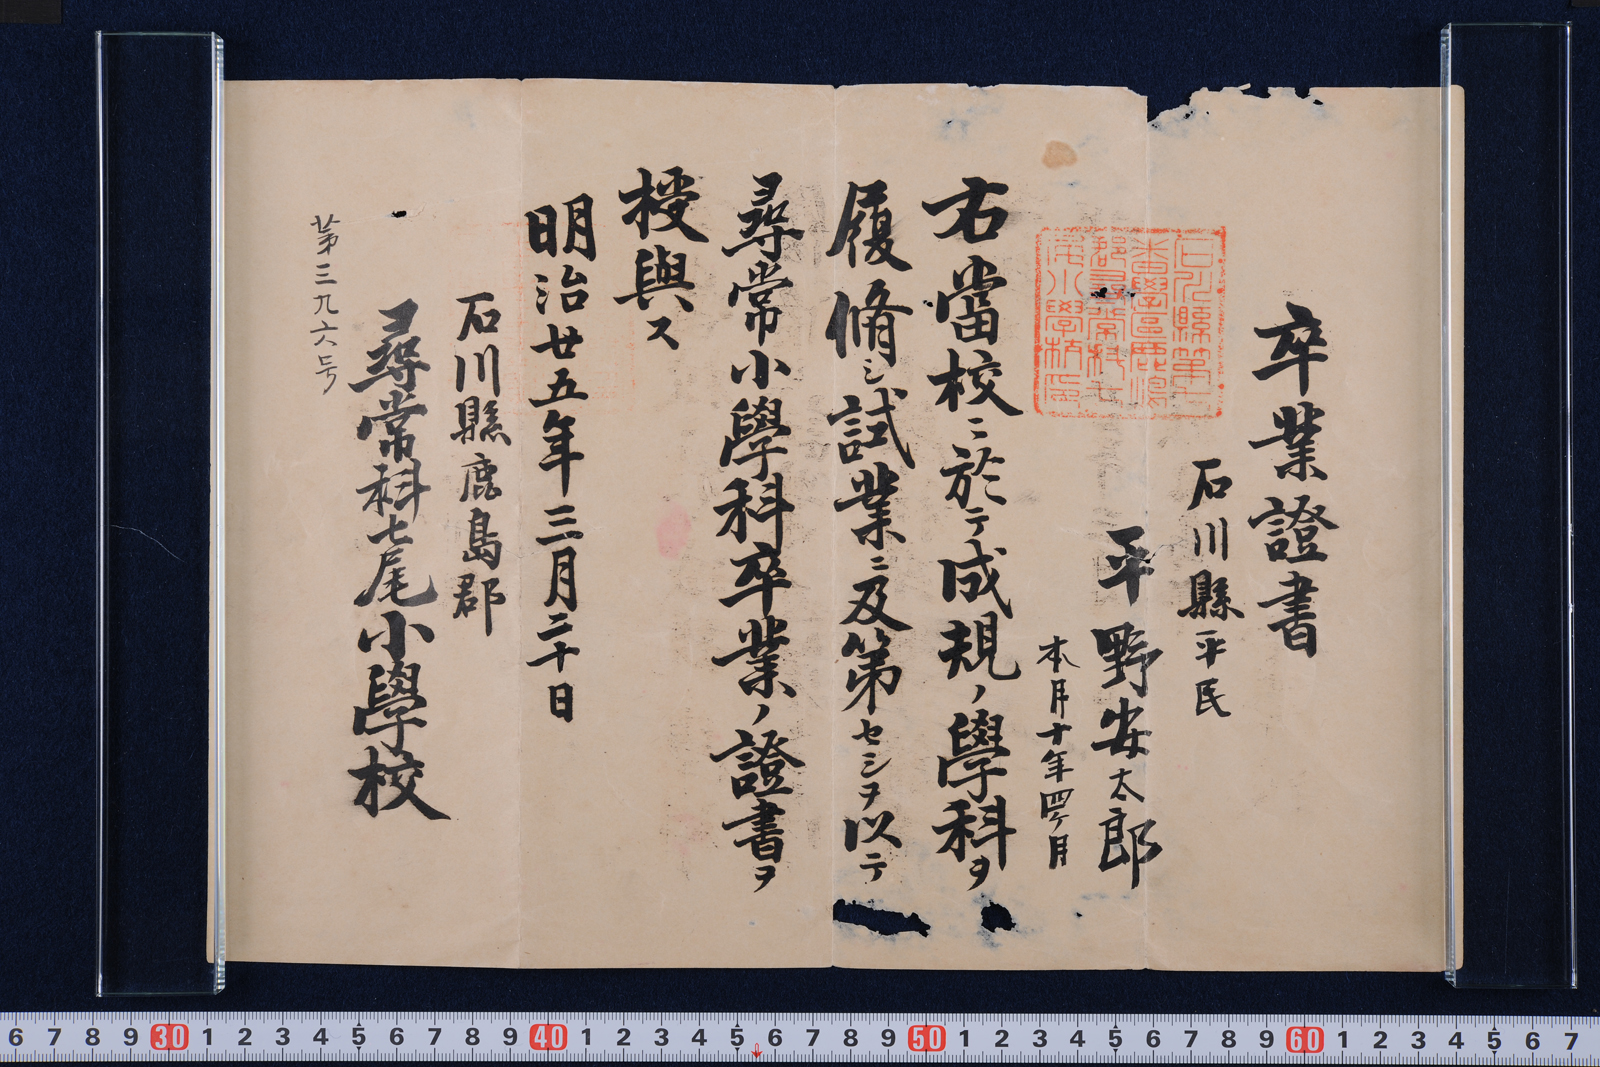 卒業證書
石川縣平民
平野安太郎
本月十年四ケ月
右當校ニ於テ成規ノ學科ヲ
履脩シ試業ニ及第セシヲ以テ
尋常小學科卒業ノ證書ヲ
授與ス
明治廿五年三月二十日
石川縣鹿島郡
尋常科七尾小學校
第三九六号
6 7 8 9 30 1 2 3 4 5 6 7 8 9 40 1 2 3 4 5 6 7 8 9 50 1 2 3 4 5 6 7 8 9 60 1 2 3 4 5 6 7